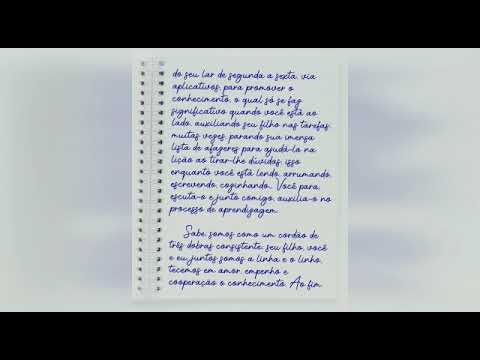 do seu lar de segunda a sexta, via
aplicativos, para promover o
conhecimento, o qual só se faz
significativo quando você está ao
lado, auxiliando seu filho nas tarefas,
muitas vezes, parando sua imensa
lista de afazeres para ajudá-la na
lição ao tirar-lhe dúvidas, isso
enquanto você está lendo, arrumando,
escrevendo, cozinhando... Você para,
escuta-o e junto comigo, auxilia-o no
processo de aprendizagem.
Sabe, somos como um cordão de
três dobras consistente, seu filho, você
e eu, juntos somos a linha e o linho,
tecemos em amor, empenho e
cooperação o conhecimento. Ao fim,